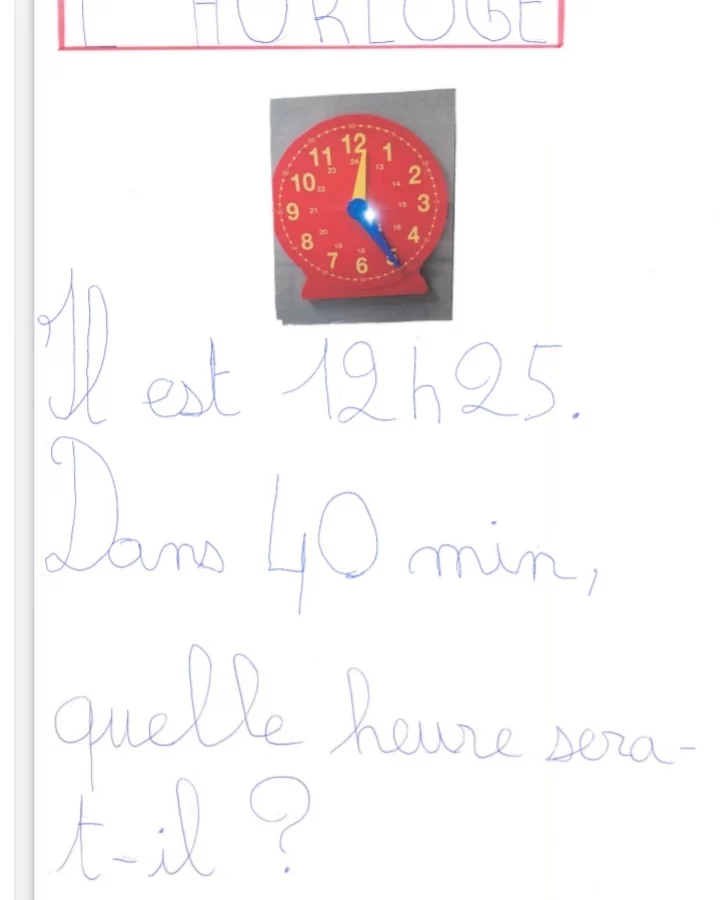 L'HORLOGE
12
11
1
10
2
9
3
8
4
7
6
5
24
23
13
22
14
21
15
20
16
19
18
Il est 12h25.
Dans 40 min,
quelle heure sera-
t-il ?